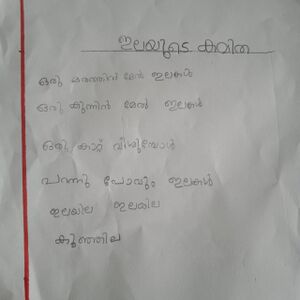 ഇലയുടെ കവിത
ഒരു മരത്തിൻ മേൽ ഇലകൾ
ഒരു കുന്നിൻ മേൽ ഇലകൾ
ഒരു കാറ്റ് വീശുമ്പോൾ
പറന്നു പോവും ഇലകൾ
ഇലയില ഇലയില
കുഞ്ഞില